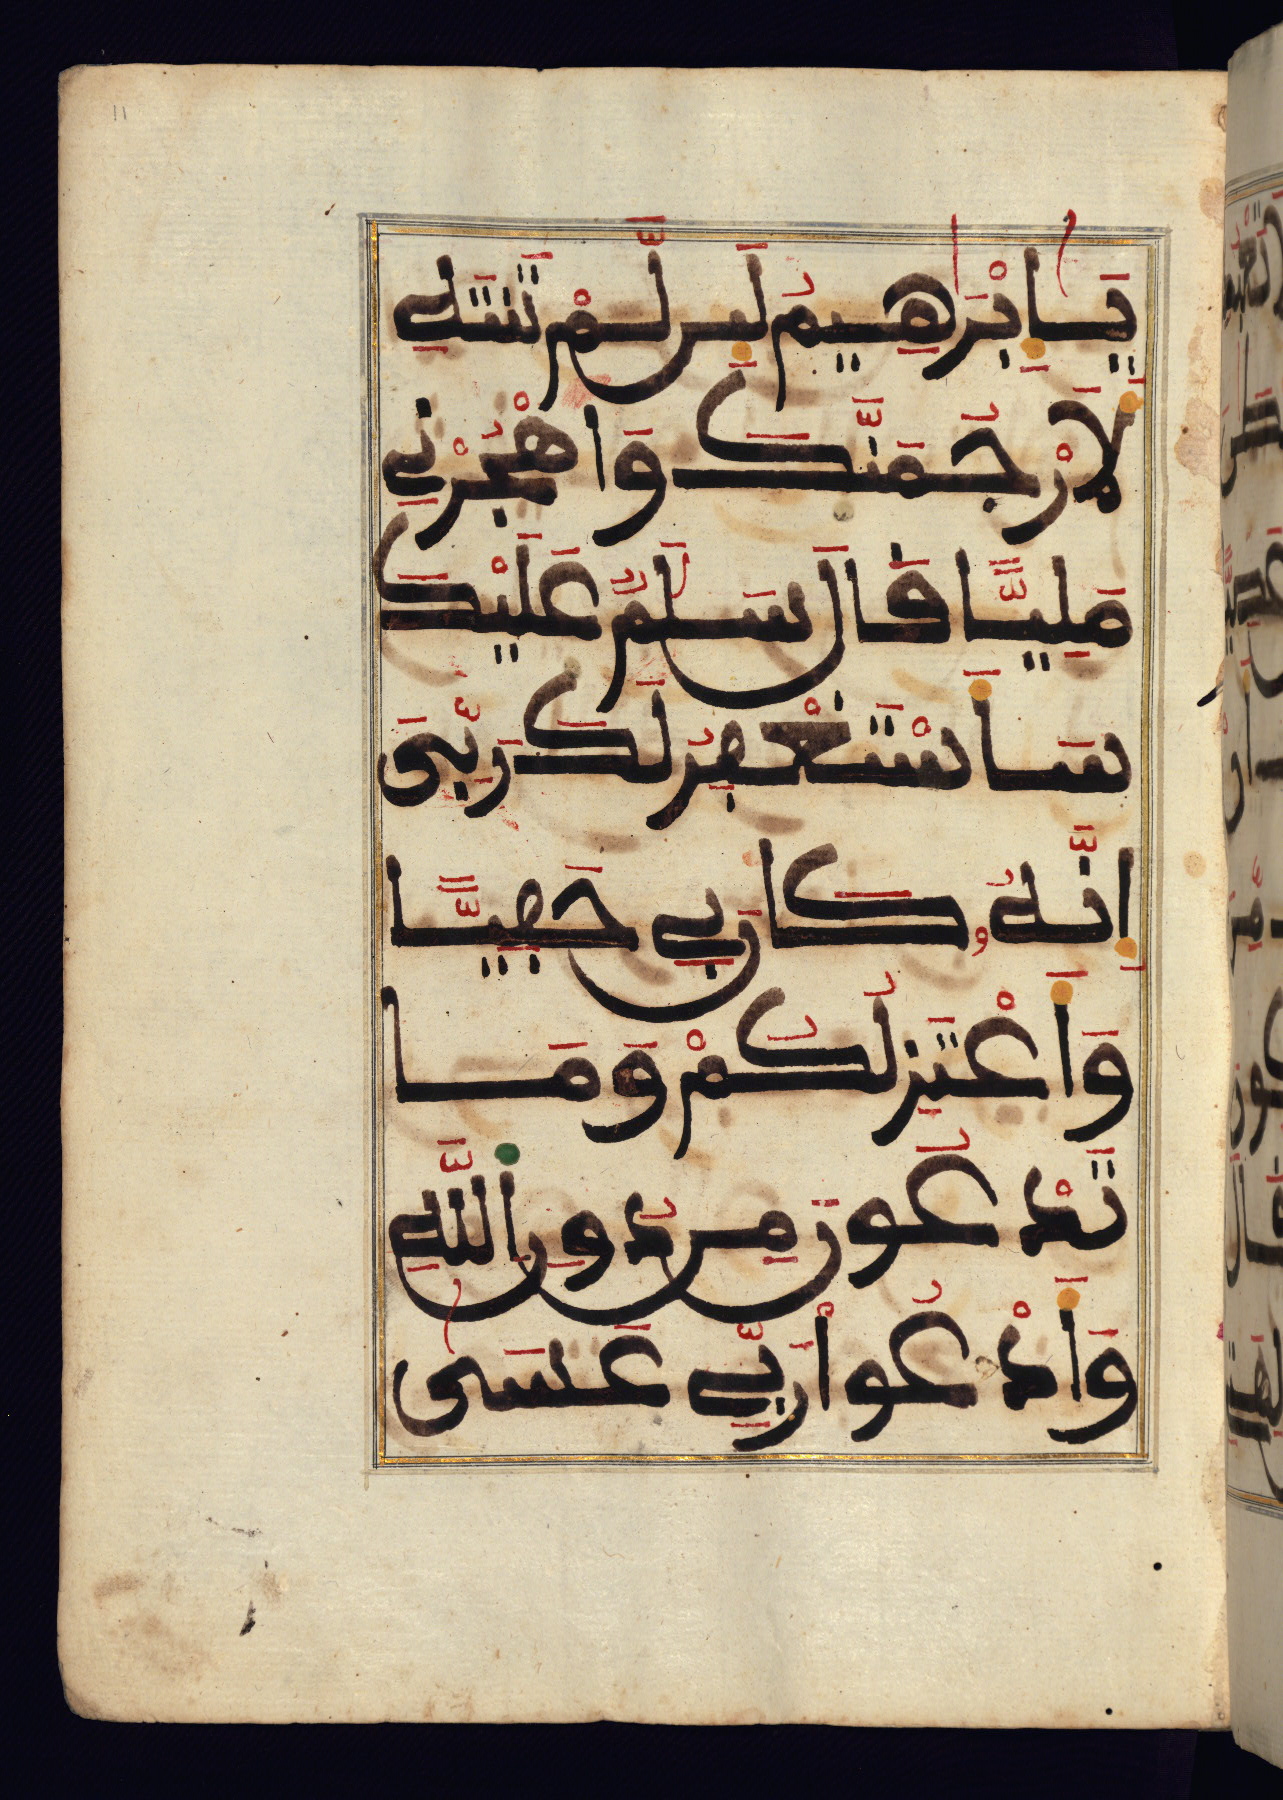 11
يَٰإِبْرَٰهِيمُ لَئِن لَّمْ تَنتَهِ
لَأَرْجُمَنَّكَ وَاهْجُرْنِي
مَلِيًّا قَالَ سَلَٰمٌ عَلَيْكَ
سَأَسْتَغْفِرُ لَكَ رَبِّىَ
إِنَّهُۥ كَانَ بِي حَفِيًّا
وَأَعْتَزِلُكُمْ وَمَا
تَدْعُونَ مِن دُونِ اِللَّهِ
وَأَدْعُواْ رَبِّي عَسَىٰ